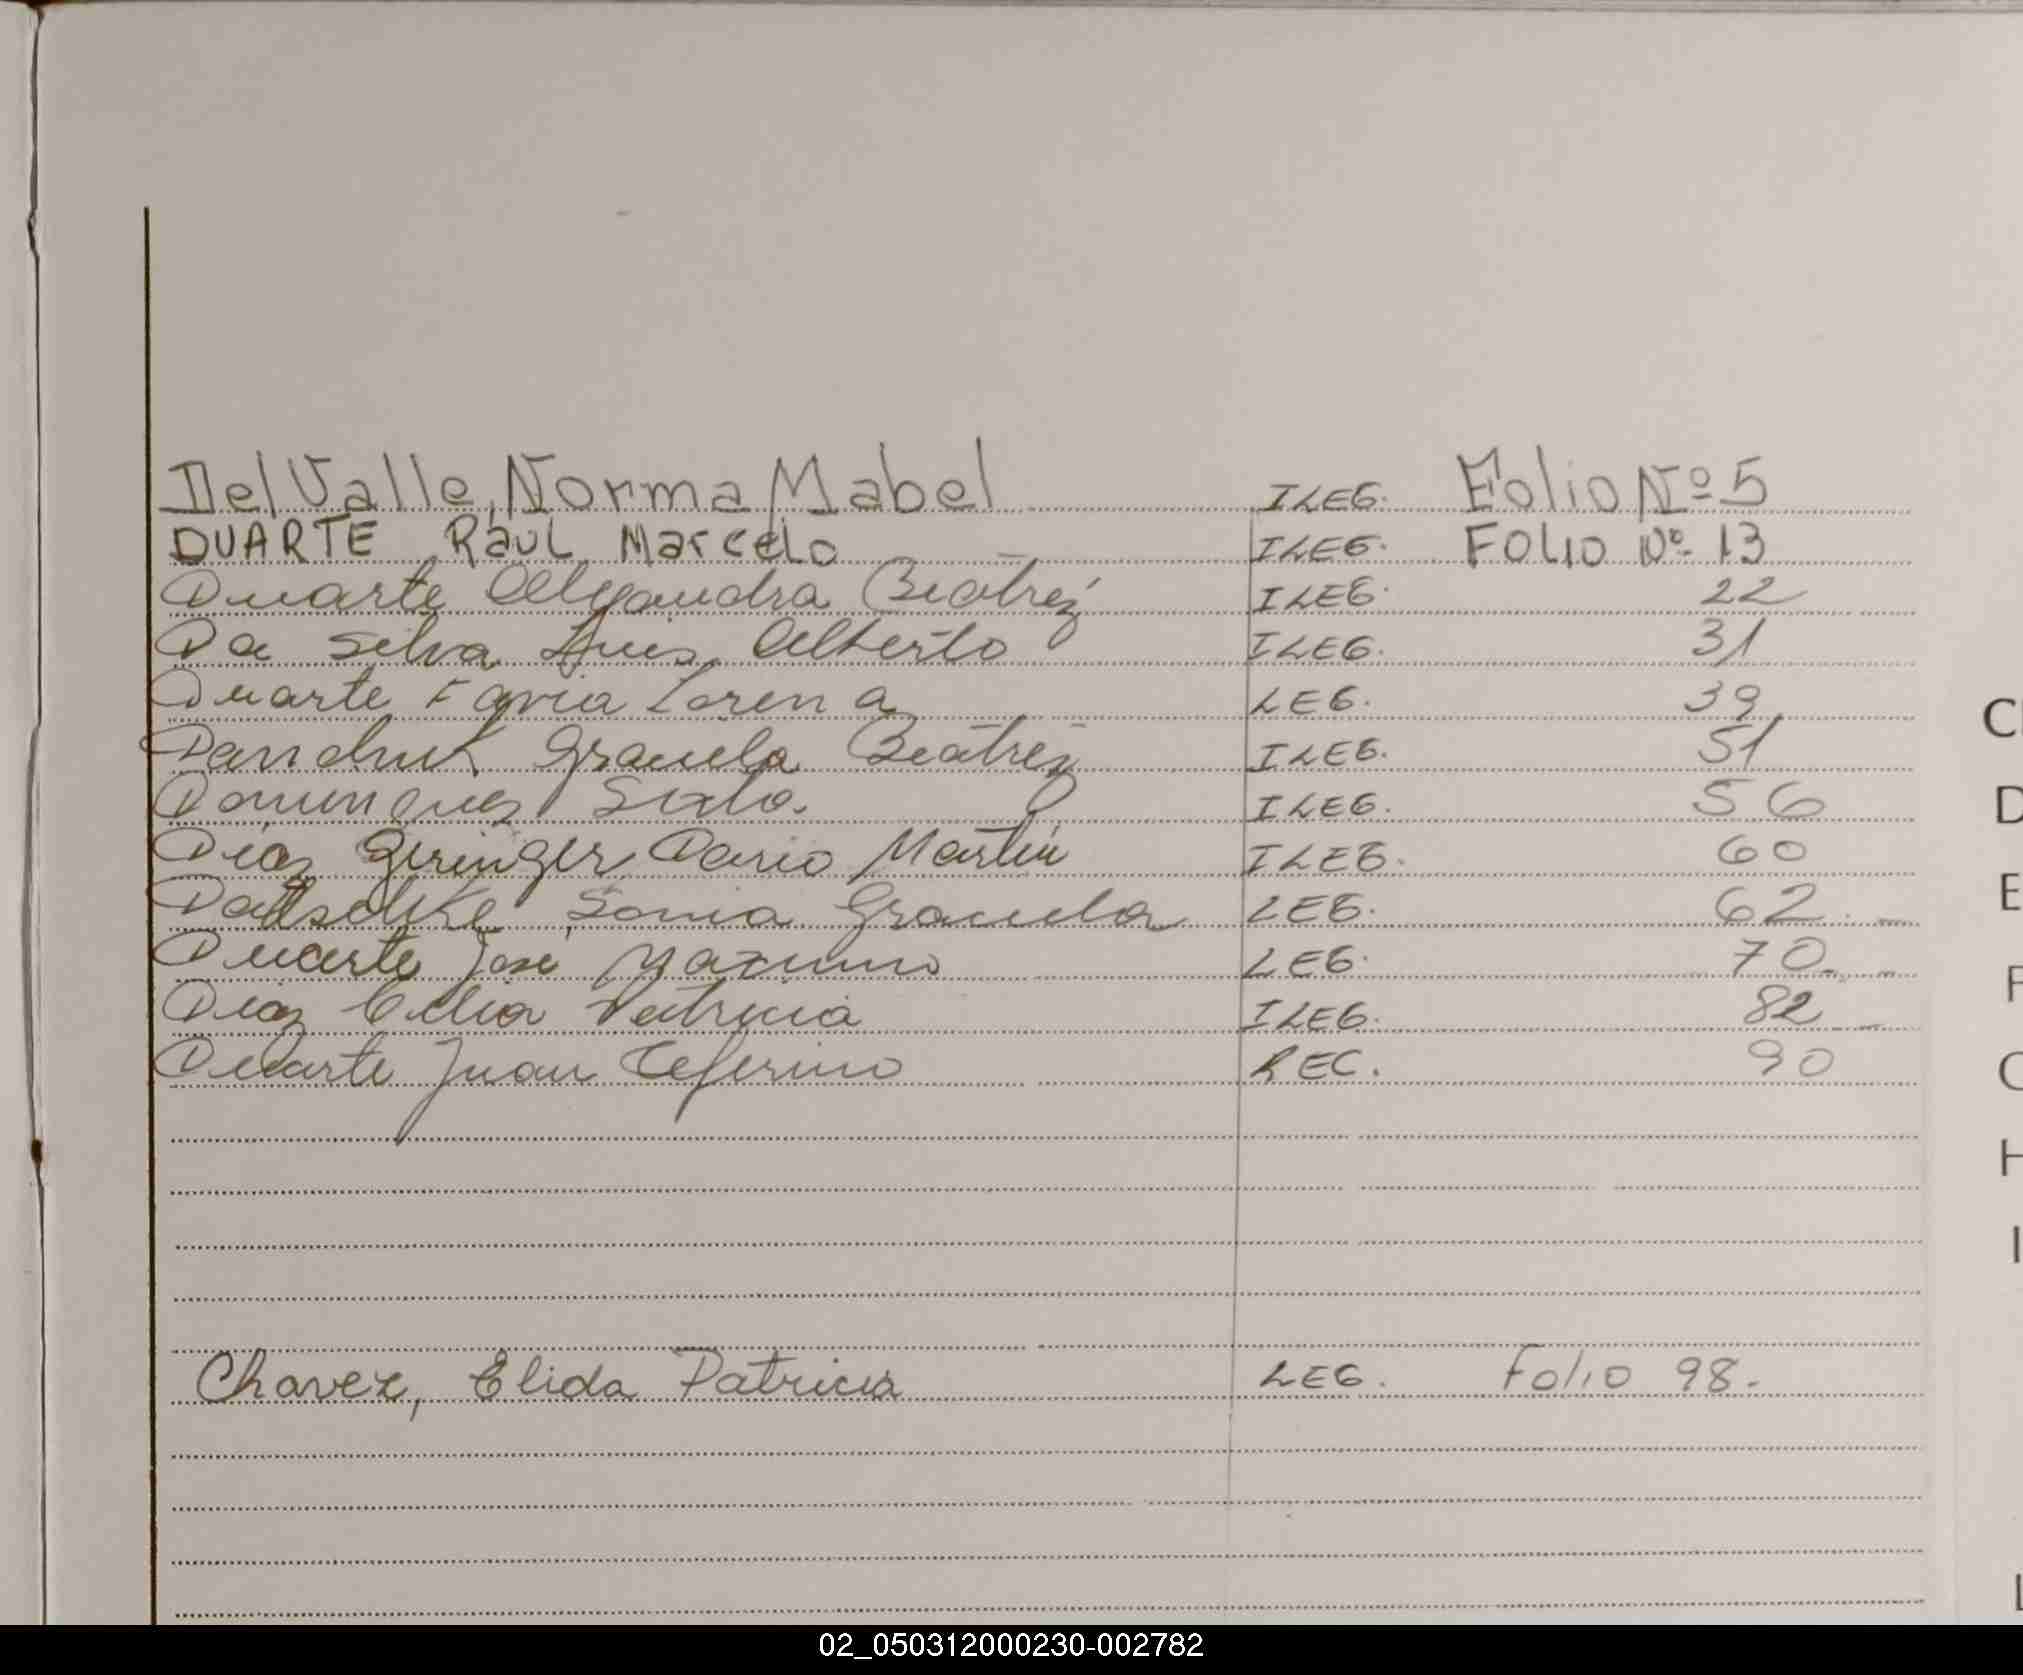 Del Valle, Norma Mabel ILEG. Folio Nº 5
DUARTE Raul Marcelo ILEG. FOLIO Nº 13
Duarte Alejandra Beatrez ILEG. 22
Da Silva Luis Alberto ILEG. 31
Duarte Favia Lorena LEG. 39
Danchuk Graciela Beatrez ILEG. 51
Dominguez Sixto. ILEG. 56
Diaz Geringer Dario Martin ILEG. 60
Sonia Graciela LEG. 62
Duarte Jose Maximo LEG. 70
Diaz Patricia ILEG. 82
Duarte Juan Ceferino REC. 90
Chavez, Elida Patricia LEG. Folio 98.
C
D
E
F
H
I
L
02_050312000230-002782